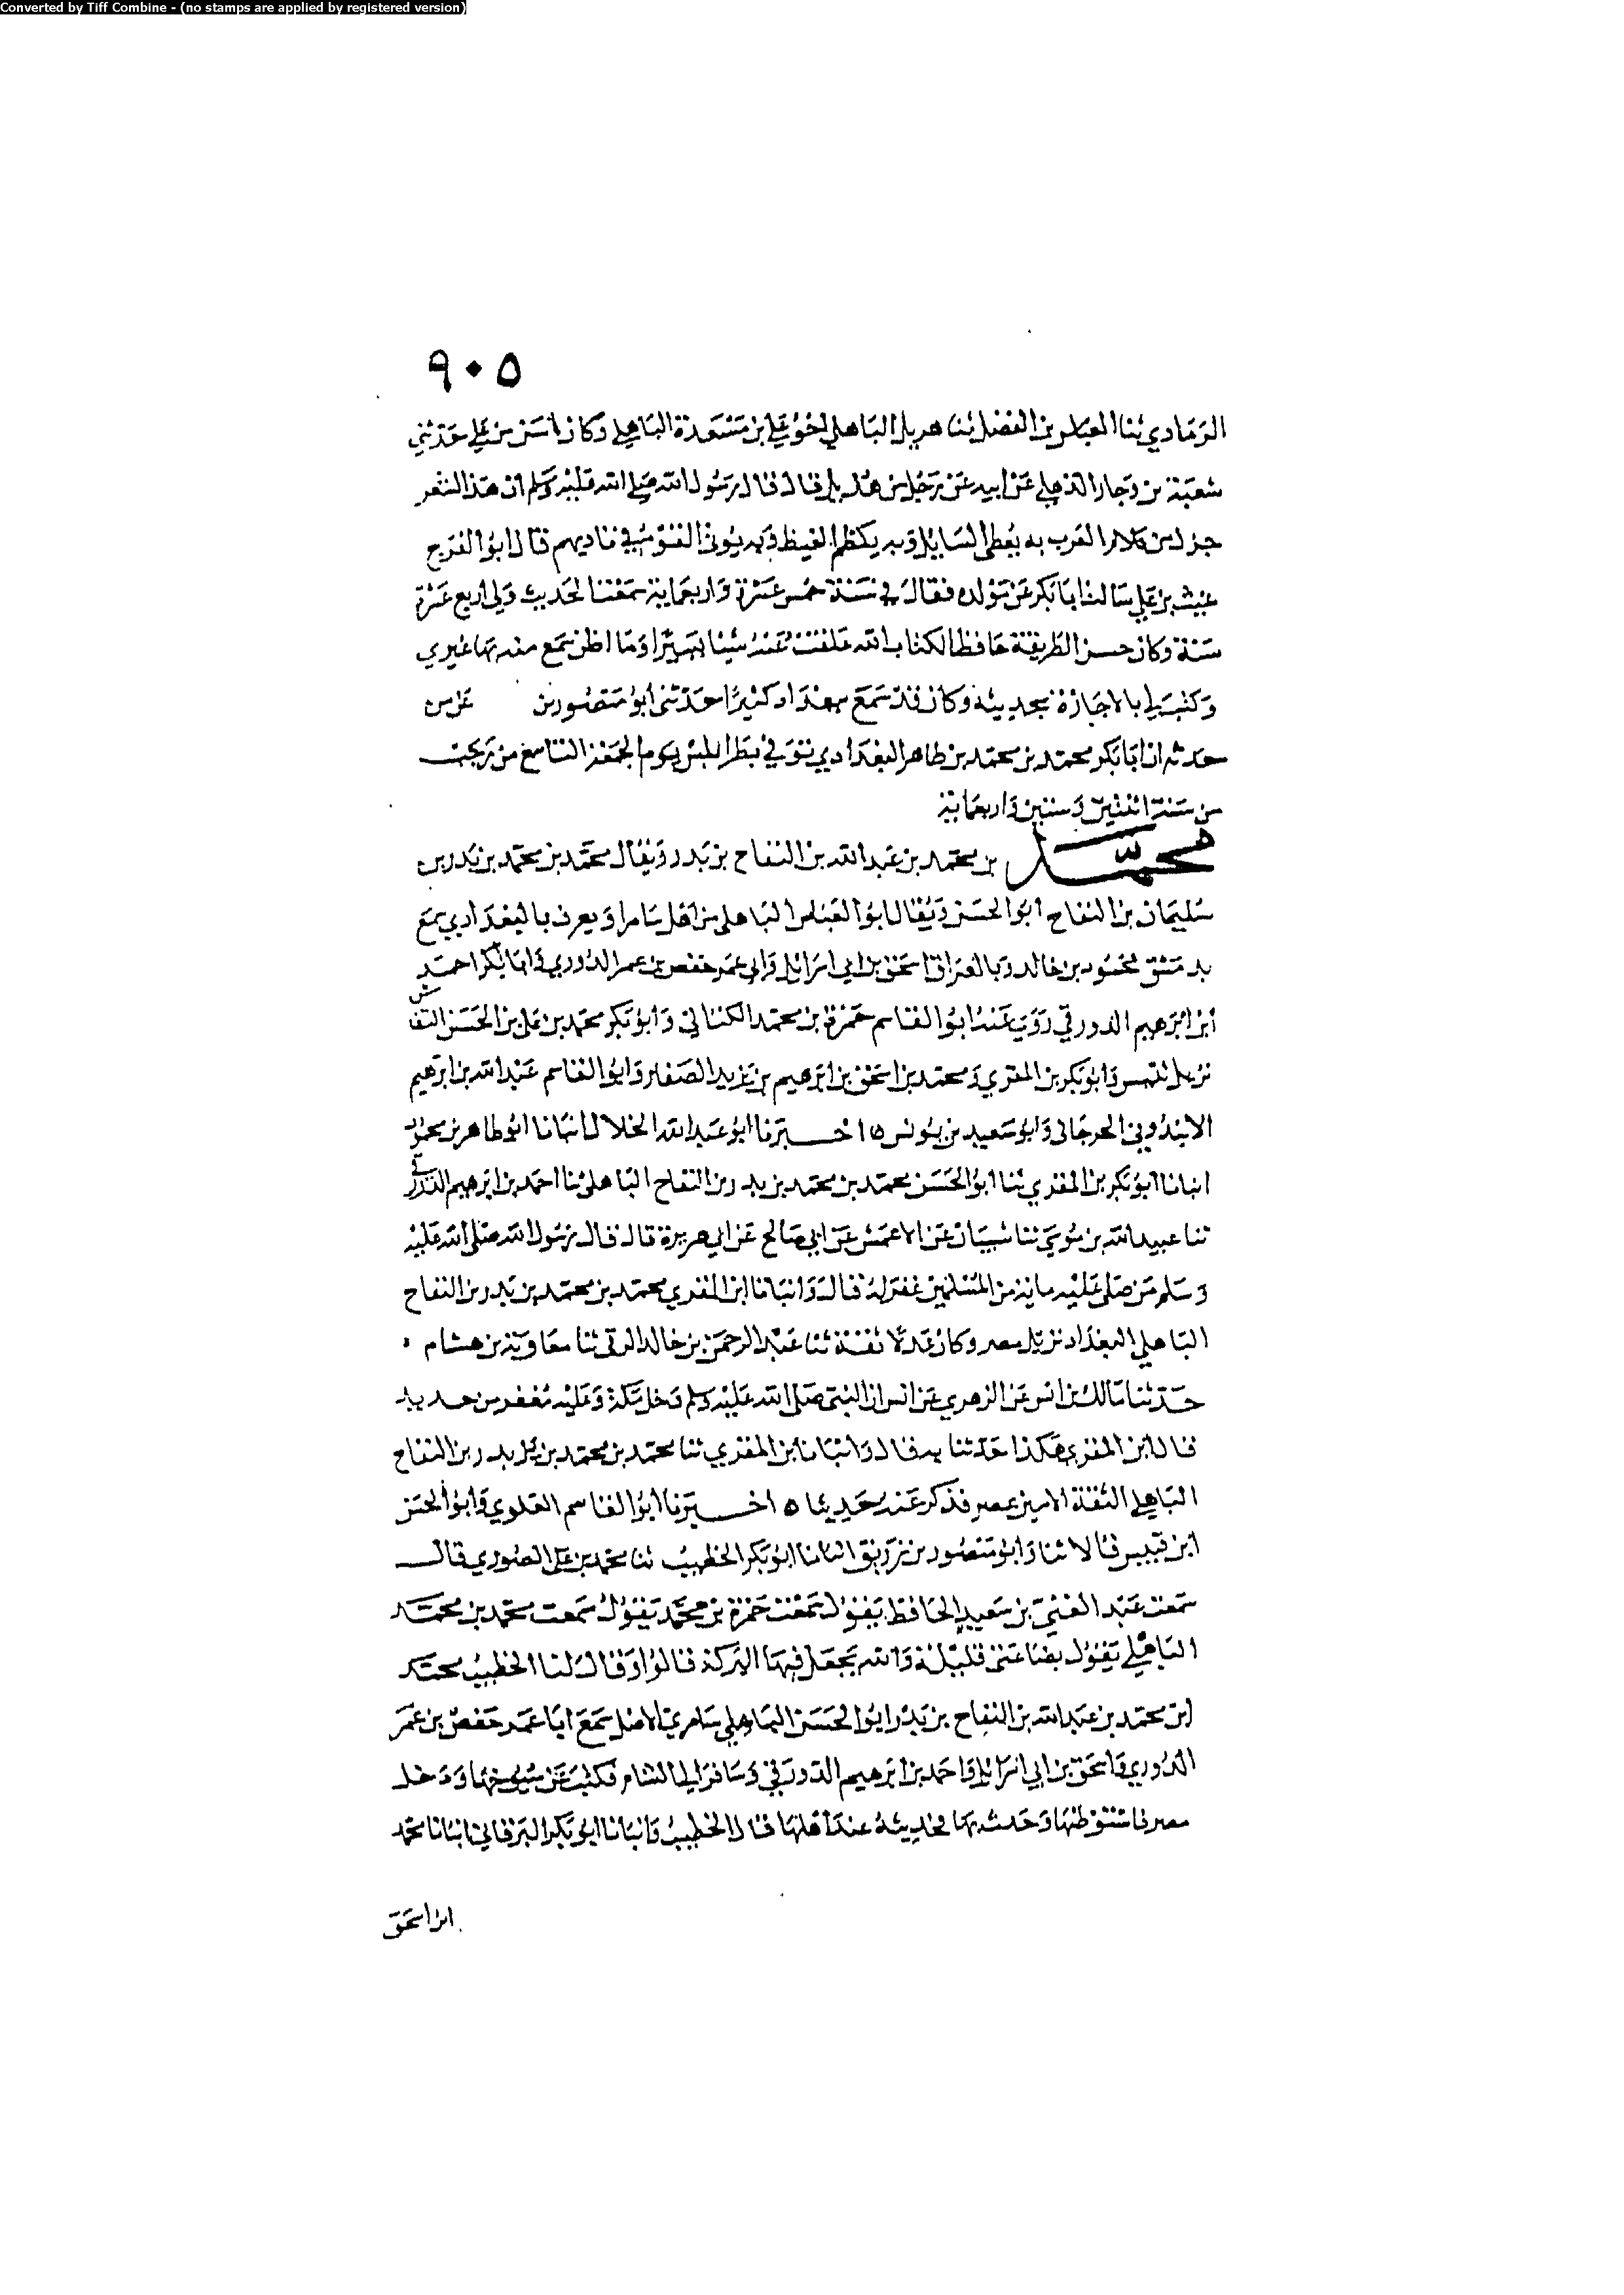 Converted by Tiff Combine - (no stamps are applied by registered version)
٩٠٥
الرمادي ثنا العباس بن الفضل ثنا هذيل الباهلي اخو علي بن مسعدة الباهلي وكان اسن من علي حدثني
شعبة بن دخار الذهلي عن ابيه عن رجل من هذيل قال قال رسول الله صلى الله عليه وسلم ان هذا الشعر
جزل من كلام العرب به يعطى السايل وبه يكظم الغيظ وبه يوتى القوم في ناديهم قال ابو الفرج
غيث بن علي سالت ابا بكر عن مولده فقال في سنة خمس عشرة واربعماية سمعنا الحديث ولي اربع عشرة
سنة وكان حسن الطريقة حافظا لكتاب الله علقت عنه شيئا يسيرا وما اظن سمع منه بها غيري
وكتب لي بالاجازة بحديثه وكان قد سمع ببغداد كثيرا حدثني ابو منصور بن عن من
حدثه ان ابا بكر محمد بن محمد بن طاهر البغدادي توفي بطرابلس يوم الجمعة التاسع من رجب
من سنة اثنتين وستين واربعماية
محمد بن محمد بن عبد الله بن النفاح بن بدر ويقال محمد بن محمد بن بدر بن
سليمان بن النفاح ابو الحسن ويقال ابو العباس الباهلي من اهل سامرا ويعرف بالبغدادي سمع
بدمشق محمود بن خالد وبالعراق اسحق بن ابي اسرائيل وابي عمر حفص بن عمر الدوري وابا بكر احمد
ابن ابرهيم الدورقي روى عنه ابو القاسم حمزة بن محمد الكناني وابو بكر محمد بن علي بن الحسن النقاش
نزيل تنيس وابو بكر بن المقري ومحمد بن اسحق بن ابرهيم بن يزيد الصفار وابو القاسم عبد الله بن ابرهيم
الابندوني الجرجاني وابو سعيد بن يونس ه اخبرنا ابو عبد الله الخلال انبانا ابو طاهر بن محمود
انبانا ابو بكر بن المقري ثنا ابو الحسن محمد بن محمد بن بدر بن النفاح الباهلي ثنا احمد بن ابرهيم الدورقي
ثنا عبيد الله بن موسى ثنا شيبان عن الاعمش عن ابي صالح عن ابي هريرة قال قال رسول الله صلى الله عليه
وسلم من صلى عليه ماية من المسلمين غفر له قال وانبانا ابن المقري محمد بن محمد بن بدر بن النفاح
الباهلي البغداد نزيل مصر وكان عدلا ثقة ثنا عبد الرحمن بن خالد الرقي ثنا معاوية بن هشام
حدثنا مالك بن انس عن الزهري عن انس ان النبي صلى الله عليه وسلم دخل مكة وعليه مغفر من حديد
قال ابن المقري هكذا حدثنا به قال وانبانا ابن المقري ثنا محمد بن محمد بن بدر بن النفاح
الباهلي الثقة الامين بمصر فذكر عنه حديثا ه اخبرنا ابو القاسم العلوي وابو الحسن
ابن قبيس قالا ثنا وابو منصور بن زريق انبانا ابو بكر الخطيب ثنا محمد بن علي الصوري قال
سمعت عبد الغني بن سعيد الحافظ يقول سمعت حمزة بن محمد يقول سمعت محمد بن محمد
الباهلي يقول بضاعتي قليلة والله يجعل فيها البركة قالوا وقال لنا الخطيب محمد
ابن محمد بن عبد الله بن النفاح بن بدر ابو الحسن الباهلي سامري الاصل سمع ابا عمر حفص بن عمر
الدوري واسحق بن ابي اسرائيل واحمد بن ابرهيم الدورقي وسافر الى الشام فكتب عن شيوخها ودخل
مصر فاستوطنها وحدث بها فحديثه عند اهلها قال الخطيب وانبانا ابو بكر البرقاني انبانا محمد
ابن اسحق